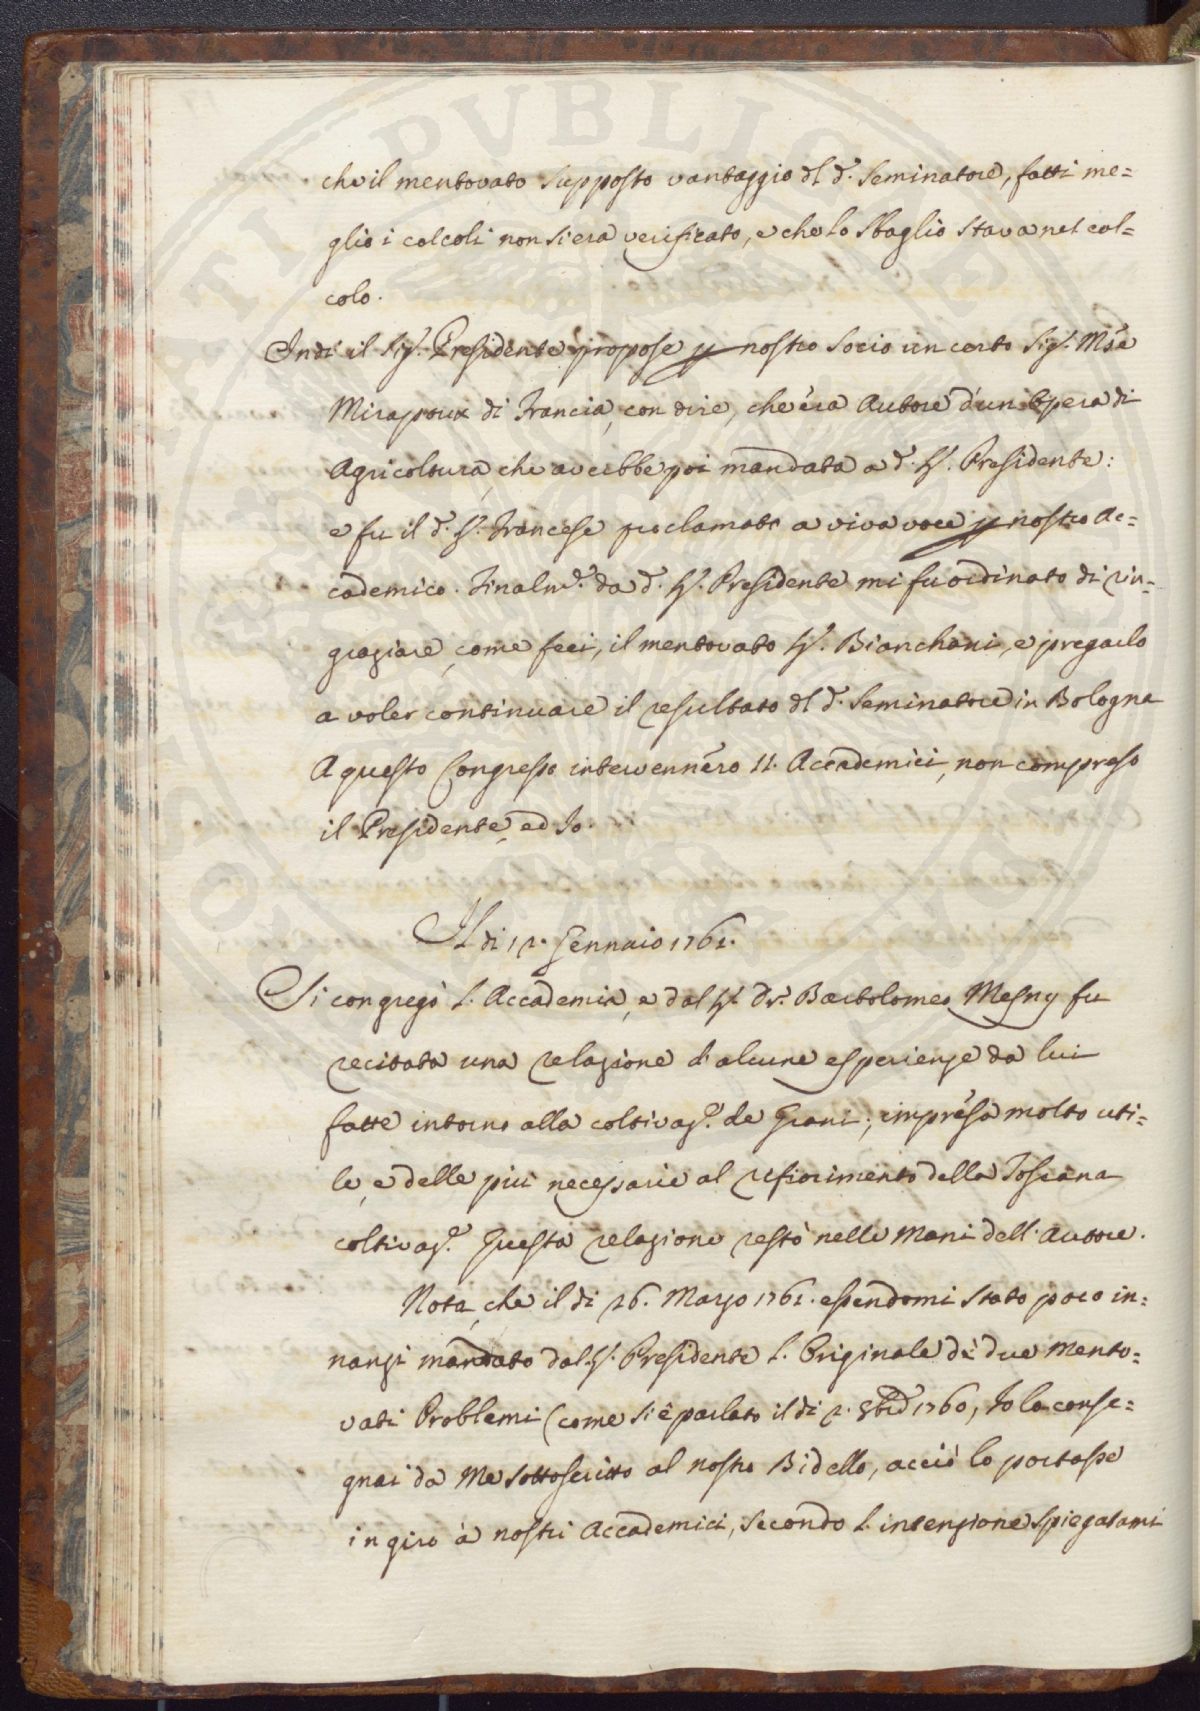 che il mentovato supposto vantaggio dl d.º Seminatore, fatti me=
glio i calcoli non si era verificato, e che lo sbaglio stava nel cal=
colo.
Indi il Sig.r Presidente propose p nostro Socio un certo Sig.r
Mirapoux di Francia, con dire, che era Autore d'un'Opera di
Agricoltura, che averebbe poi mandata a d.º S.r Presidente:
e fu il d.º S.r Francese proclamato a viva voce p nostro Ac=
cademico. Finalm.e da d.º S.r Presidente mi fu ordinato di rin=
graziare, come feci, il mentovato S.r Bianchani, e pregarlo
a voler continuare il resultato dl d.º Seminatore in Bologna
A questo Congresso intervennero 11. Accademici, non compreso
il Presidente, ed Io.
Il di 12. Gennaio 1761.
Si congregò l'Accademia, e dal S.r Dr. Bartolomeo Mesny fu
recitata una relazione di alcune esperienze da lui
fatte intorno alla coltivaz.e de Grani; impresa molto uti=
le, e delle più necessarie al rifiorimento della Toscana
coltivaz.e Questa relazione restò nelle mani dell'Autore.
Nota, che il di 26. Marzo 1761. essendomi stato poco in=
nanzi mandato dal S.r Presidente l'Originale dè due mento=
vati Problemi (come si è parlato il di 2. 8bre 1760, Io lo conse=
gnai da Me sottoscritto al nostro Bidello, acciò lo portasse
in giro à nostri Accademici, secondo l'intenzione spiegatami